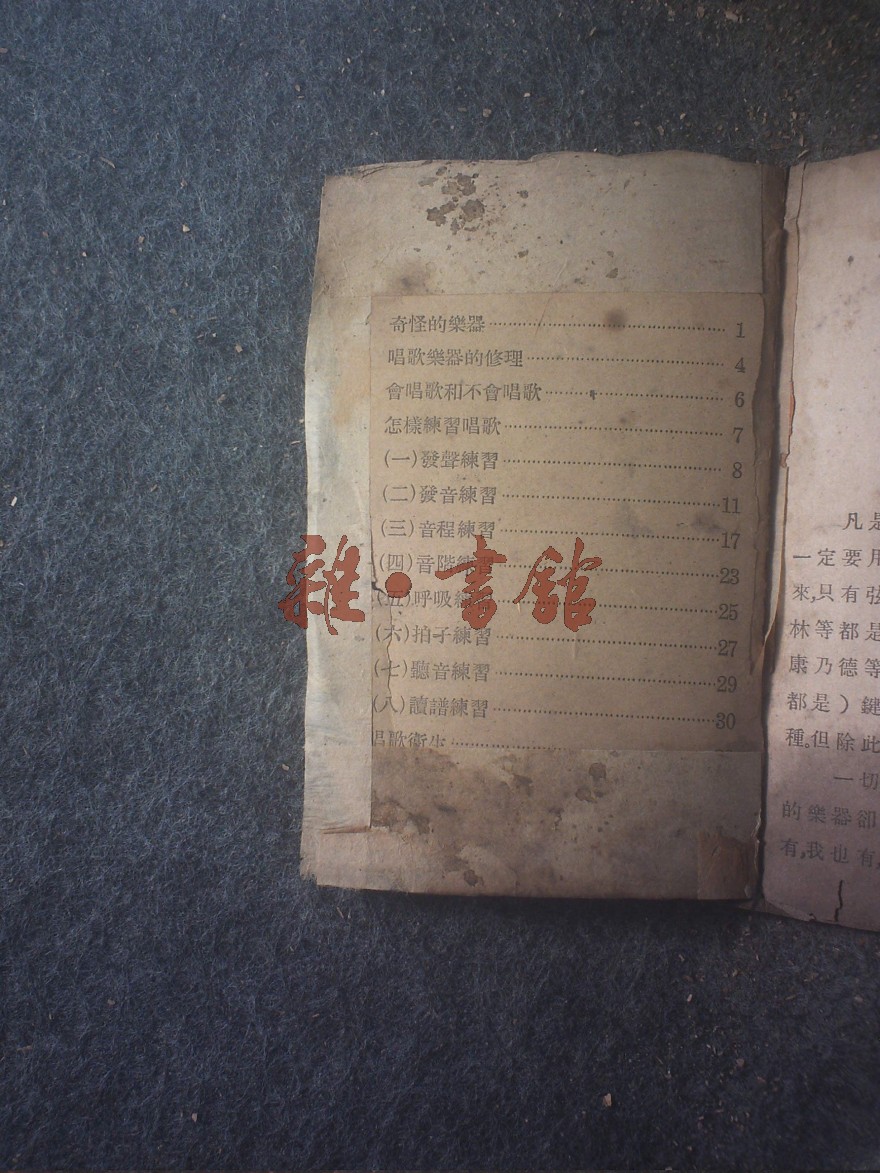 奇怪的樂器……1
唱歌樂器的修理……4
會唱歌和不會唱歌……6
怎樣練習唱歌……7
(一)發聲練習……8
(二)發音練習……11
(三)音程練習……17
(四)音階練習……23
(五)呼吸練習……25
(六)拍子練習……27
(七)聽音練習……29
(八)讀譜練習……30
唱歌衛生……
凡是
一定要用
來,只有弦
林等都是
康乃德等
都是)鍵
種。但除此
一切
的樂器卻
有,我也有,
雜·書館